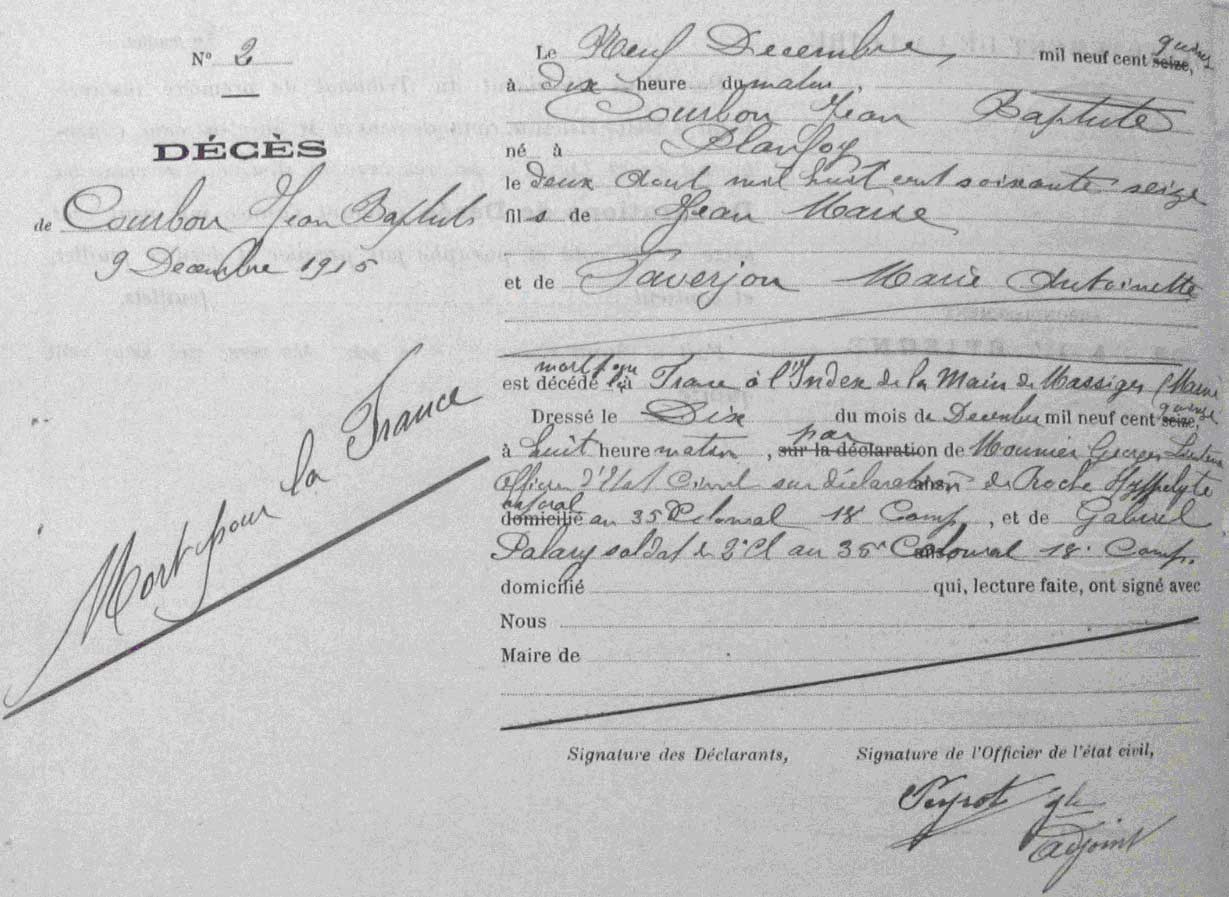 N° 2
DÉCÈS
de Courbon Jean Baptiste
9 Decembre 1915
Mort pour la France
Le Neuf Decembre, mil neuf cent seize, quinze
à dix heure du matin,
Courbon Jean Baptiste
né à Planfoy
le deux Aout mil huit cent soixante seize
fils de Jean Marie
et de Taverjon Marie Antoinette
mort pour
est décédé la France à l'Index de la Main de Massiges (Marne
Dressé le Dix du mois de Decembre mil neuf cent seize, quinze
à huit heure matin, sur la déclaration par de Mounier Georges
Officier d'Etat Civil sur déclaration de Roche Hyppolyte
caporal
domicilié au 35e Colonial 18e Comp, et de Gabriel
Palary soldat de 2e Cl au 35e Colonial 18e Comp.
domicilié qui, lecture faite, ont signé avec
Nous
Maire de
Signature des Déclarants, Signature de l'Officier de l'état civil,
Peyrot
adjoint